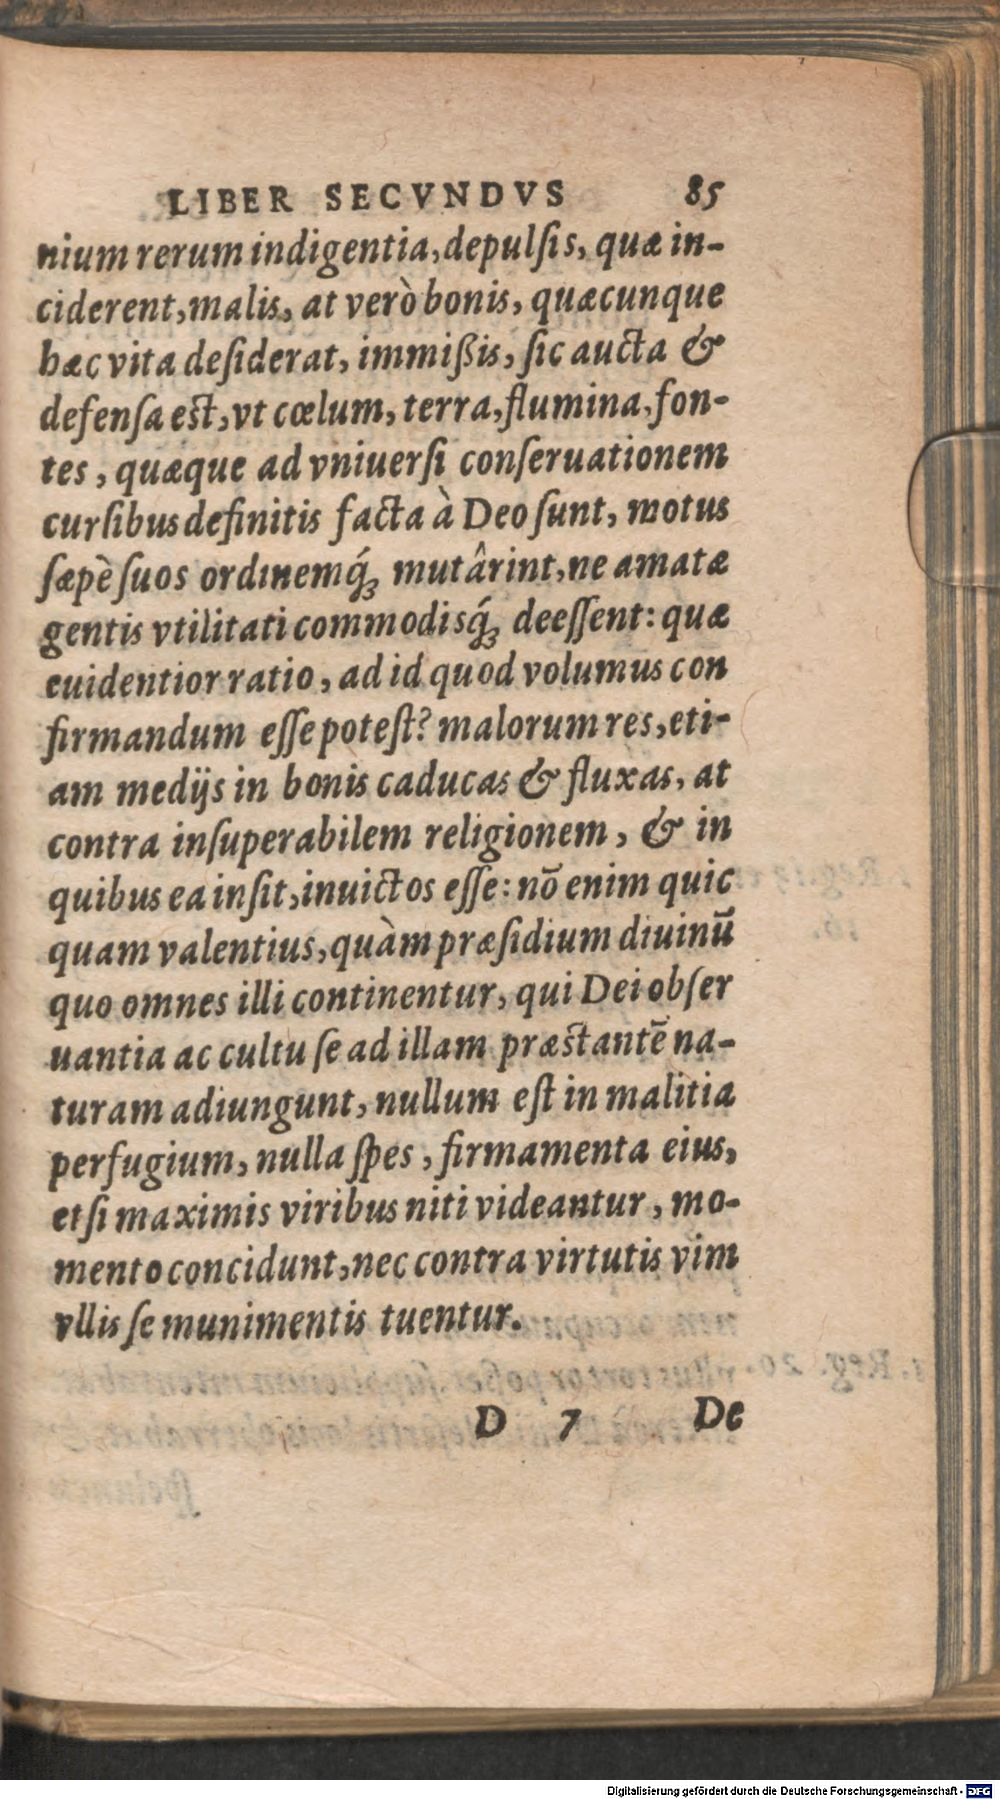 LIBER SECVNDVS 85
nium rerum indigentia, depulſis, quæ in-
ciderent, malis, at verò bonis, quæcunque
hæc vita deſiderat, immißis, ſic aucta &
defenſa est, vt cœlum, terra, flumina, fon-
tes, quæque ad vniuerſi conſeruationem
curſibus definitis facta à Deo ſunt, motus
ſæpè ſuos ordinemq́ꝫ mutârint, ne amatæ
gentis vtilitati commodisq́ꝫ deeſſent: quæ
euidentior ratio, ad id quod volumus con
firmandum eſſe poteſt? malorum res, eti-
am medijs in bonis caducas & fluxas, at
contra inſuperabilem religionem, & in
quibus ea inſit, inuictos eſſe: nō enim quic
quam valentius, quàm præſidium diuinū
quo omnes illi continentur, qui Dei obſer
uantia ac cultu ſe ad illam præstantē na-
turam adiungunt, nullum eſt in malitia
perfugium, nulla ſpes, firmamenta eius,
etſi maximis viribus niti videantur, mo-
mento concidunt, nec contra virtutis vim
vllis ſe munimentis tuentur.
D 7 De
Digitalisierung gefördert durch die Deutsche Forschungsgemeinschaft - DFG